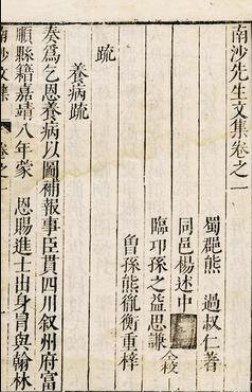 南沙先生文集卷之一
蜀罷熊　過叔仁著
同邑楊述中
臨卭孫之益思謙　仝校
曾孫熊胤衡重梓
疏
養病疏
奏爲乞恩養病以圖補報事臣貫四川叙州府富
順縣籍嘉靖八年蒙　恩賜進士出身冒與翰林
南沙文集　卷之一